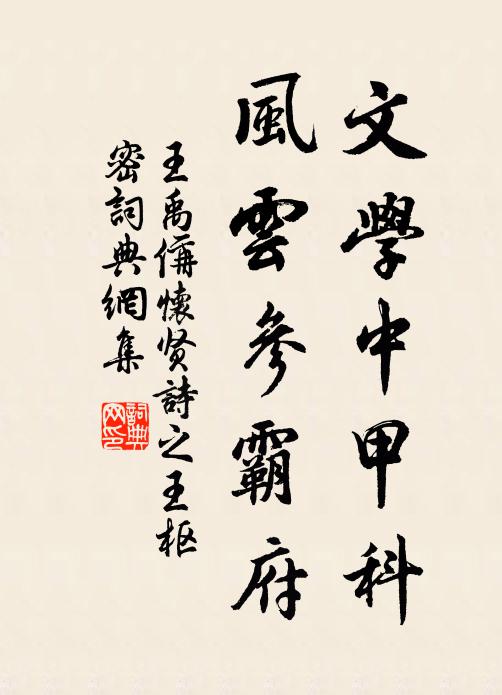 文學中甲科
風雲參霸府
王禹偁懷贤詩之王枢
密詞典網集
詞典
网印